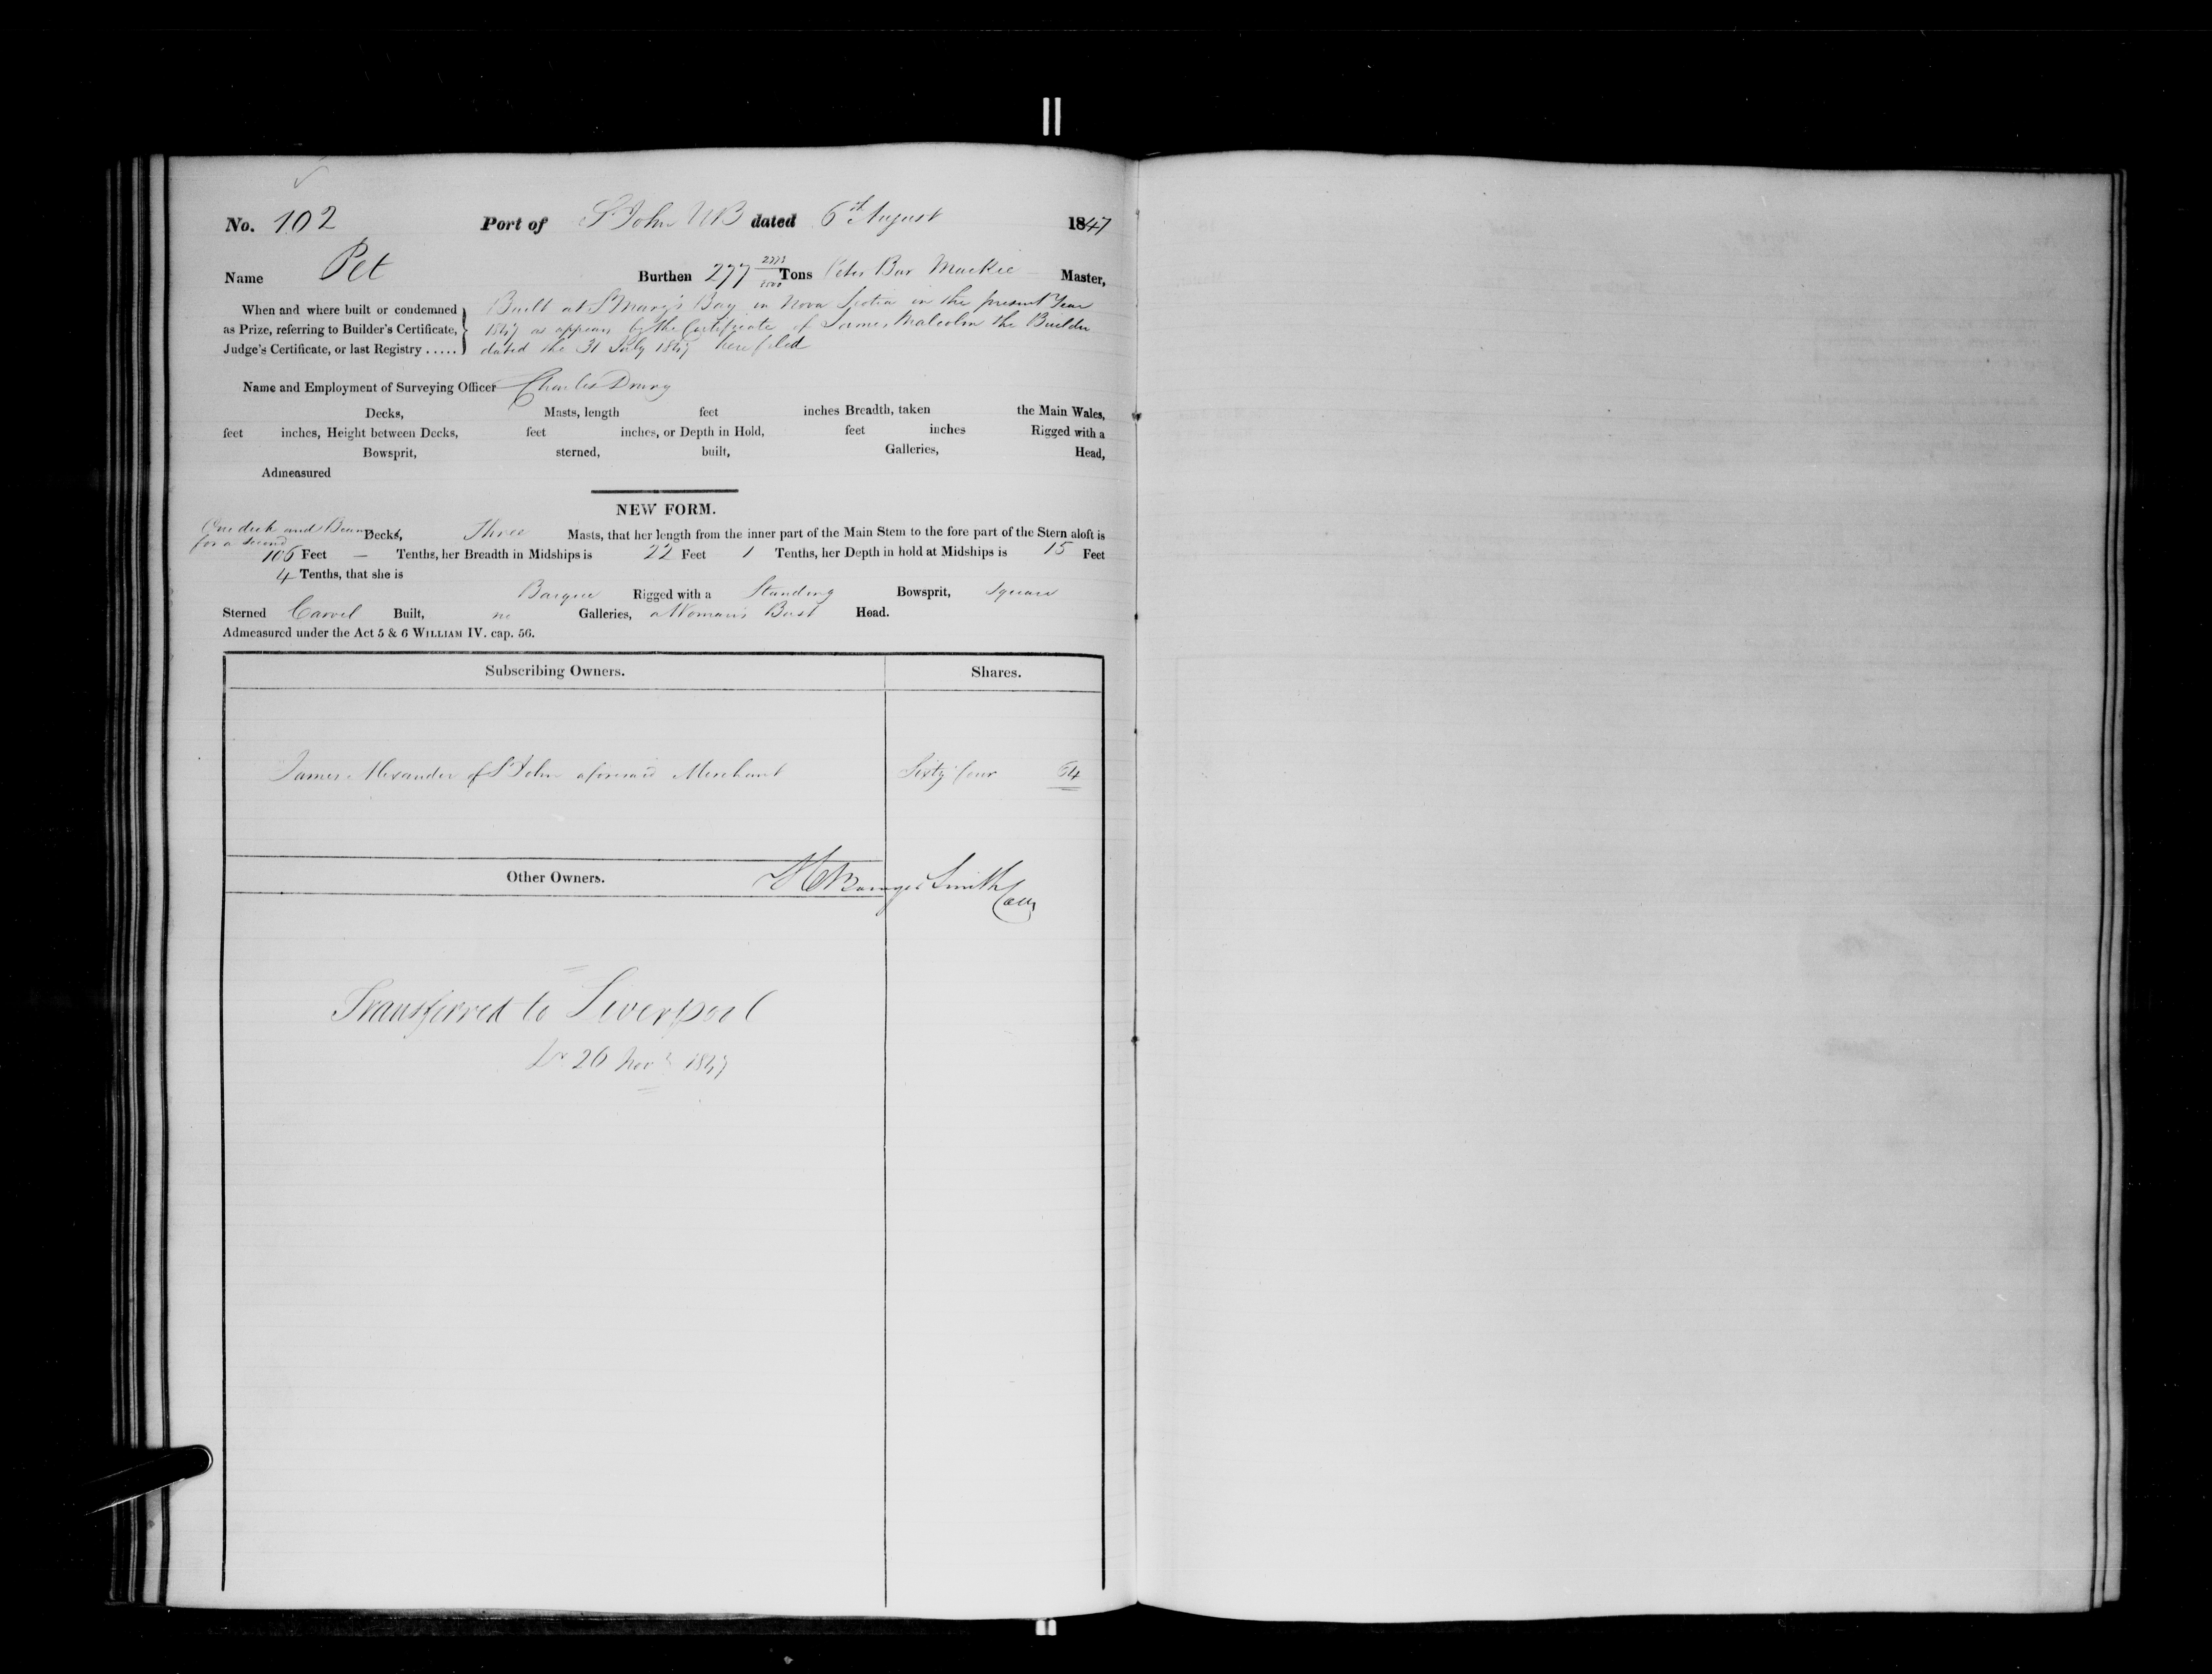 No. 102 Port of St John NB dated 6th August 1847
Name Pet Burthen 277 Tons Peter Bar Mackie Master,
When and where built or condemned as Prize, referring to Builder's Certificate, Judge's Certificate, or last Registry .....
Built at St Mary's Bay in Nova Scotia in the present Year
1847 as appears by the Certificate of James Malcolm the Builder
dated the 31 July 1847 here filed
Name and Employment of Surveying Officer Charles Drury
Decks, Masts, length feet inches Breadth, taken the Main Wales,
feet inches, Height between Decks, feet inches, or Depth in Hold, feet inches Rigged with a
Bowsprit, sterned, built, Galleries, Head,
Admeasured
NEW FORM.
One deck and Beams for a second Decks, Three Masts, that her length from the inner part of the Main Stem to the fore part of the Stern aloft is
106 Feet — Tenths, her Breadth in Midships is 22 Feet 1 Tenths, her Depth in hold at Midships is 15 Feet
4 Tenths, that she is
Barque Rigged with a Standing Bowsprit, Square
Sterned Carvel Built, no Galleries, a Woman's Bust Head.
Admeasured under the Act 5 & 6 WILLIAM IV. cap. 56.
Subscribing Owners. Shares.
James Alexander of St John aforesaid Merchant Sixty four 64
Other Owners.
Smith
Transferred to Liverpool
26 Novr 1847